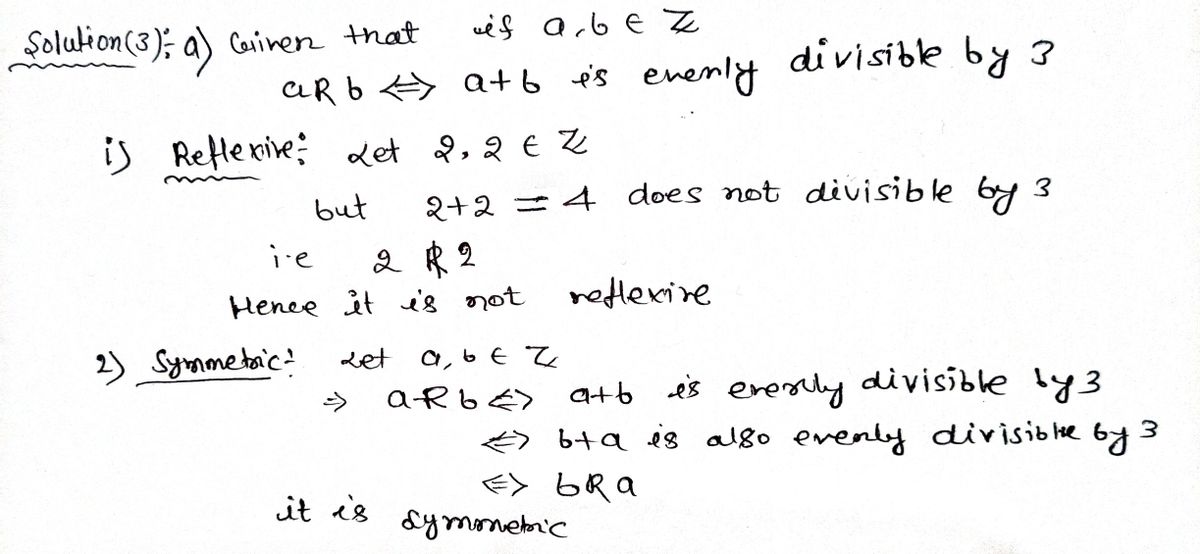 Solution(3):- a) Given that if a, b ∈ ℤ
aRb ⇔ a+b is evenly divisible by 3
i) Reflexive: Let 2, 2 ∈ ℤ
but 2+2 = 4 does not divisible by 3
i.e 2 R̸ 2
Hence it is not reflexive
2) Symmetric: Let a, b ∈ ℤ
⇒ aRb ⇔ a+b is evenly divisible by 3
⇔ b+a is also evenly divisible by 3
⇔ bRa
it is symmetric